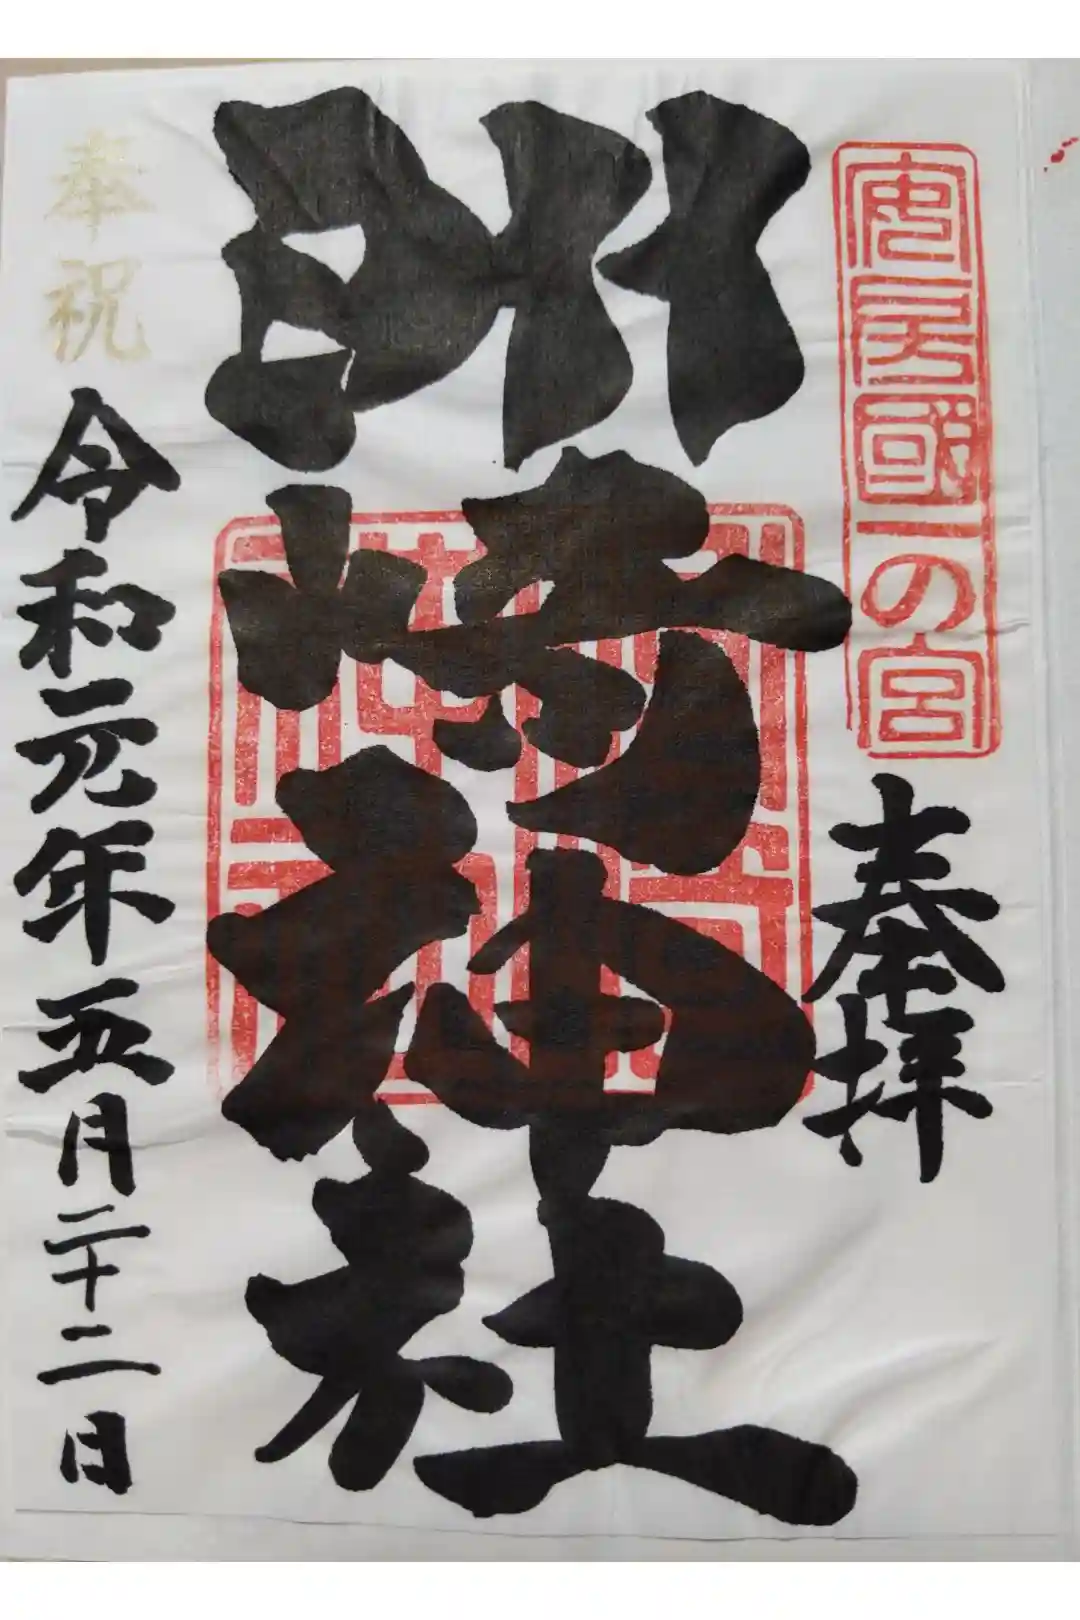 安房國一の宮
奉拝
洲崎神社
奉祝
令和元年五月二十二日